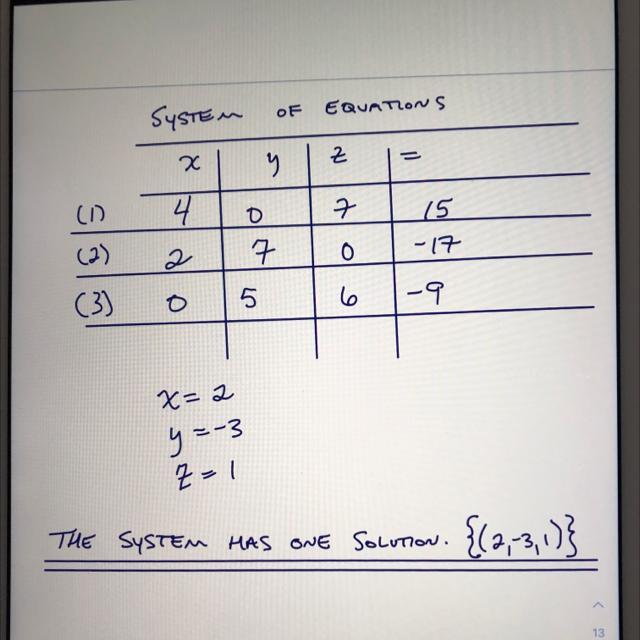 SYSTEM OF EQUATIONS
x y z =
(1) 4 0 7 15
(2) 2 7 0 -17
(3) 0 5 6 -9
x = 2
y = -3
z = 1
THE SYSTEM HAS ONE SOLUTION. {(2,-3,1)}
13